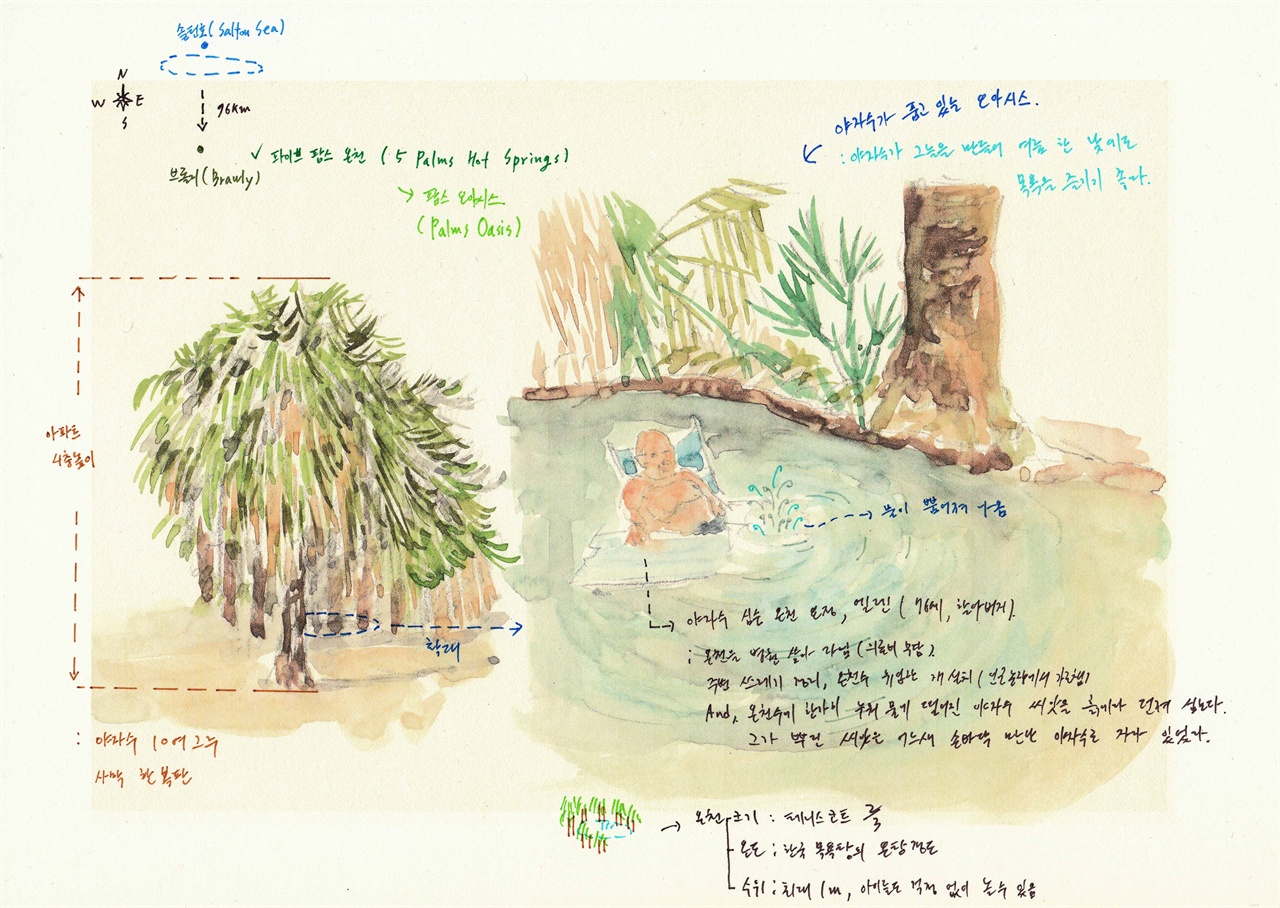 솔턴호(Salton Sea)
N
W E
S
96km
브롤리(Brawly)
✓ 파이브 팜스 온천 (5 Palms Hot Springs)
↘ 팜스 오아시스
(Palms Oasis)
야자수가 품고 있는 오아시스.
: 야자수가 그늘을 만들어 여름 한 낮에도
목욕을 즐기기 좋다.
아파트
4층높이
확대
물이 뿜어져 나옴
: 야자수 10여 그루
사막 한 복판
야자수 심는 온천 요정, 엘린 (76세, 할아버지).
: 온천을 병원 삼아 다님 (의료비 부담).
주변 쓰레기 정리, 온천수 취입관 개설치
And, 온천수에 한가히 누워 물에 떨어진 야자수 씨앗을 흙에다 던져 심는다.
그가 뿌린 씨앗은 어느새 손바닥 만한 야자수로 자라 있었다.
온천 크기 : 테니스코트
온도 : 한국 목욕탕의 온탕 정도
수위 : 최대 1m, 아이들도 걱정 없이 놀 수 있음